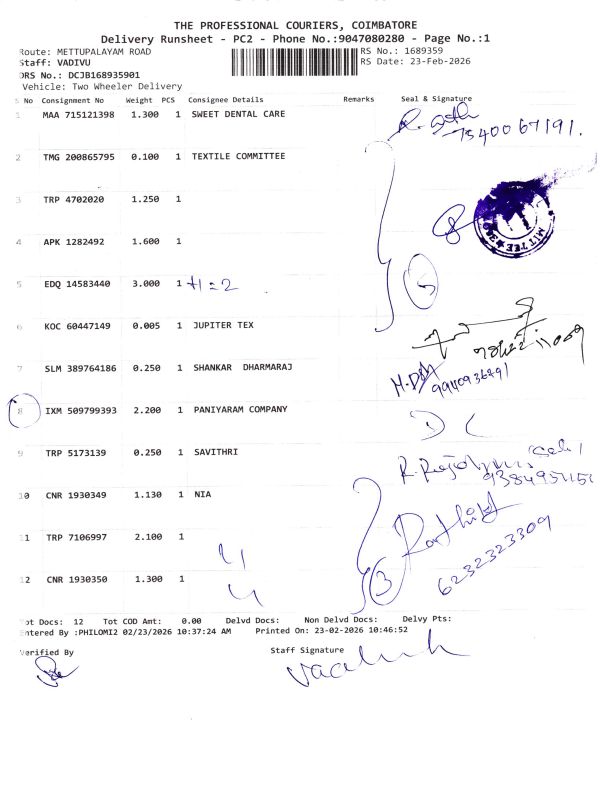 THE PROFESSIONAL COURIERS, COIMBATORE
Delivery Runsheet - PC2 - Phone No.:9047080280 - Page No.:1
Route: METTUPALAYAM ROAD RS No.: 1689359
Staff: VADIVU RS Date: 23-Feb-2026
DRS No.: DCJB168935901
Vehicle: Two Wheeler Delivery
S No Consignment No Weight PCS Consignee Details Remarks Seal & Signature
1 MAA 715121398 1.300 1 SWEET DENTAL CARE
7540067191.
2 TMG 200865795 0.100 1 TEXTILE COMMITTEE
3 TRP 4702020 1.250 1
4 APK 1282492 1.600 1
MITTEE
5 EDQ 14583440 3.000 1 +1=2
6 KOC 60447149 0.005 1 JUPITER TEX
7 SLM 389764186 0.250 1 SHANKAR DHARMARAJ
8 IXM 509799393 2.200 1 PANIYARAM COMPANY
D C
9 TRP 5173139 0.250 1 SAVITHRI
10 CNR 1930349 1.130 1 NIA
11 TRP 7106997 2.100 1
6232323309
12 CNR 1930350 1.300 1
3
Tot Docs: 12 Tot COD Amt: 0.00 Delvd Docs: Non Delvd Docs: Delvy Pts:
Entered By :PHILOMI2 02/23/2026 10:37:24 AM Printed On: 23-02-2026 10:46:52
Verified By Staff Signature